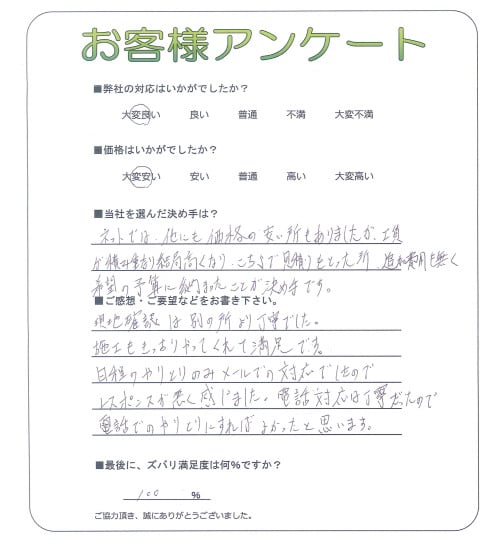 お客様アンケート
■弊社の対応はいかがでしたか？
大変良い 良い 普通 不満 大変不満
■価格はいかがでしたか？
大変安い 安い 普通 高い 大変高い
■当社を選んだ決め手は？
ネットでは、他にも価格の安い所もありましたが、工賃
が積み重なり結局高くなり、こちらで見積りをとった所、追加費用も無く
希望の予算に納まったことが決め手です。
■ご感想・ご要望などをお書き下さい。
現地確認は別の所より丁寧でした。
施工もきっちりやってくれて満足です。
日程のやりとりのみメールでの対応でしたので
レスポンスが悪く感じました。電話対応は丁寧だったので
電話でのやりとりにすればよかったと思います。
■最後に、ズバリ満足度は何%ですか？
100 %
ご協力頂き、誠にありがとうございました。